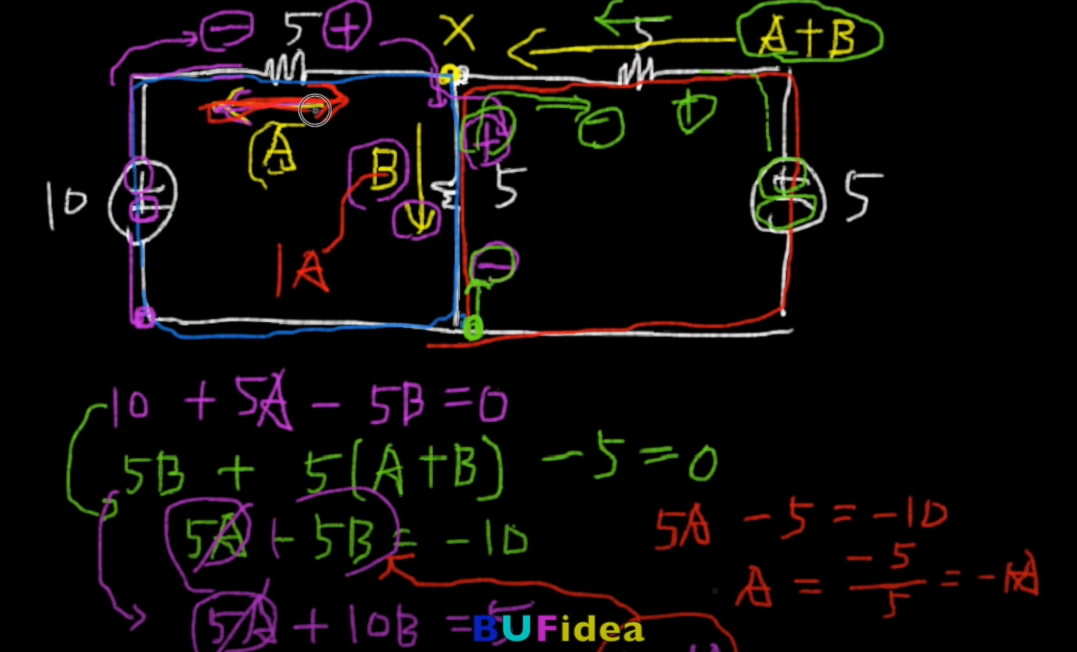 − 5 + X 5 A+B
A B + 5 − +
10 5
1A −
10 + 5A − 5B = 0
5B + 5(A+B) − 5 = 0
5A − 5B = −10
5A − 5 = −10
A = −5/5 = −1A
5A + 10B = 5
BUFidea